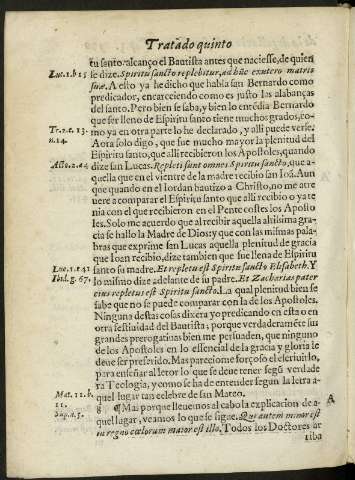 Tratado quinto
tu santo/alcanço el Bautista antes que naciesse, de quien
Luc. 1. b 15 se dize. Spiritu sancto replebitur, ad huc ex utero matris
suæ. A esto ya he dicho que habla san Bernardo como
predicador, encareciendo como es justo las alabanças
del santo. Pero bien se saba, y bien lo entēdia Bernardo
que ser lleno de Espiritu santo tiene muchos grados, co-
mo ya en otra parte lo he declarado, y alli puede verse.
n. 14. Aora solo digo, que fue mucho mayor la plenitud del
Espiritu santo, que alli recibieron los Apostoles, quando
Acto. 2. a 4 dize san Lucas. Repleti sunt omnes Spiritu sancto, que a-
quella que en el vientre de la madre recibio san Ioā. Aun
que quando en el Iordan bautizo a Christo, no me atre
uere a comparar el Espiritu santo que alli recibio o ya te
nia con el que recibieron en el Pentecostes los Aposto
les. Solo me acuerdo que al recibir aquella altissima gra-
cia se hallo la Madre de Dios: y que con las mismas pala-
bras que exprime san Lucas aquella plenitud de gracia
que Ioan recibio, dize tambien que fue llena de Espiritu
Luc. 1. e 41 santo su madre. Et repleta est Spiritu sancto Elisabeth. Y
Ibid. g. 67. lo mismo dize adelante de su padre. Et Zacharias pater
eius repletus est Spiritu sancto. La qual plenitud bien se
sabe que no se puede comparar con la de los Apostoles.
Ninguna destas cosas dixera yo predicando en esta o en
otra festiuidad del Bautista; porque verdaderamēte sus
grandes prerogatiuas bien me persuaden, que ninguno
de los Apostoles en lo essencial de la gracia y gloria le
deue ser preferido. Mas pareciome forçoso el escriuirlo,
para enseñar al letor lo que se deue tener segū verdade
ra Teologia, y como se ha de entender segun la letra a-
Mat. 11. b. quel lugar tan celebre de san Mateo.
11. 8 ¶ Mas porque lleuemos al cabo la explicacion de a- A
quel lugar, veamos lo que se sigue. Qui autem minor est
in regno cœlorum maior est illo. Todos los Doctores ar
riba